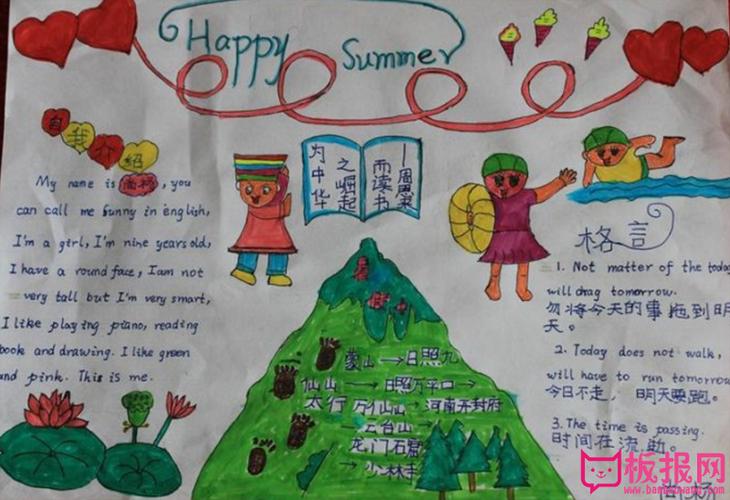 Happy Summer
自我介绍
My name is , you
can call me Sunny in english,
I'm a girl, I'm nine years old,
I have a round face, I am not
very tall but I'm very smart,
I like playing piano, reading
book and drawing. I like green
and pink. This is me.
为中华
之崛起
而读书
—周恩来
蒙山→日照九
仙山→日照万平口→
太行 万仙山→河南开封府
→云台山
龙门石窟
→少林寺
格言
1. Not matter of the today
will drag tomorrow.
勿将今天的事拖到明
天。
2. Today does not walk,
will have to run tomorrow
今日不走，明天要跑。
3. The time is passing.
时间在流逝。
板报网
www.banbaowang.com